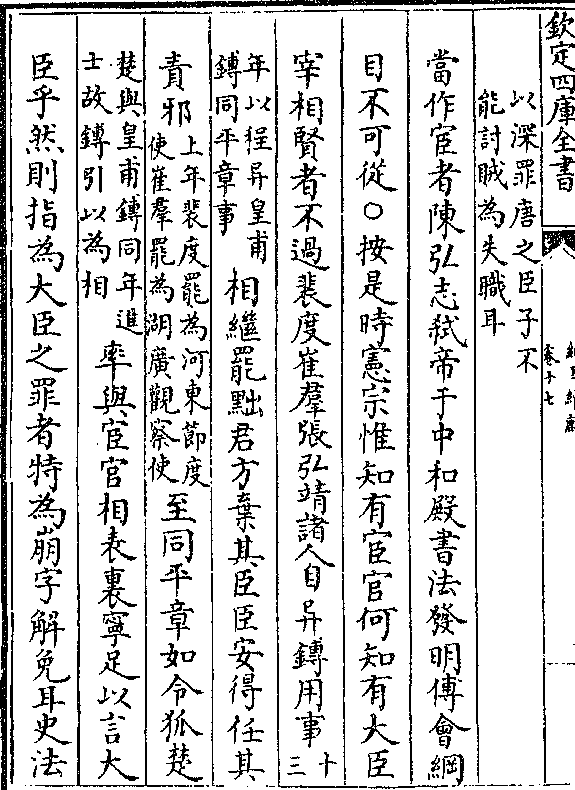 欽定四庫全書
卷十七
以深罪唐之臣子不
能討賊為失職耳
當作宦者陳弘志弑帝于中和殿書法發明傅會綱
目不可從○按是時憲宗惟知有宦官何知有大臣
宰相賢者不過裴度崔羣張弘靖諸人自异鏄用事十三
年以程异皇甫
鏄同平章事
相繼罷黜君方棄其臣臣安得任其
責邪
上年裴度罷為河東節度
使崔羣罷為湖廣觀察使
至同平章如令狐楚
楚與皇甫鏄同年進
士故鏄引以為相
率與宦官相表裏寧足以言大
臣乎然則指為大臣之罪者特為崩字解免耳史法